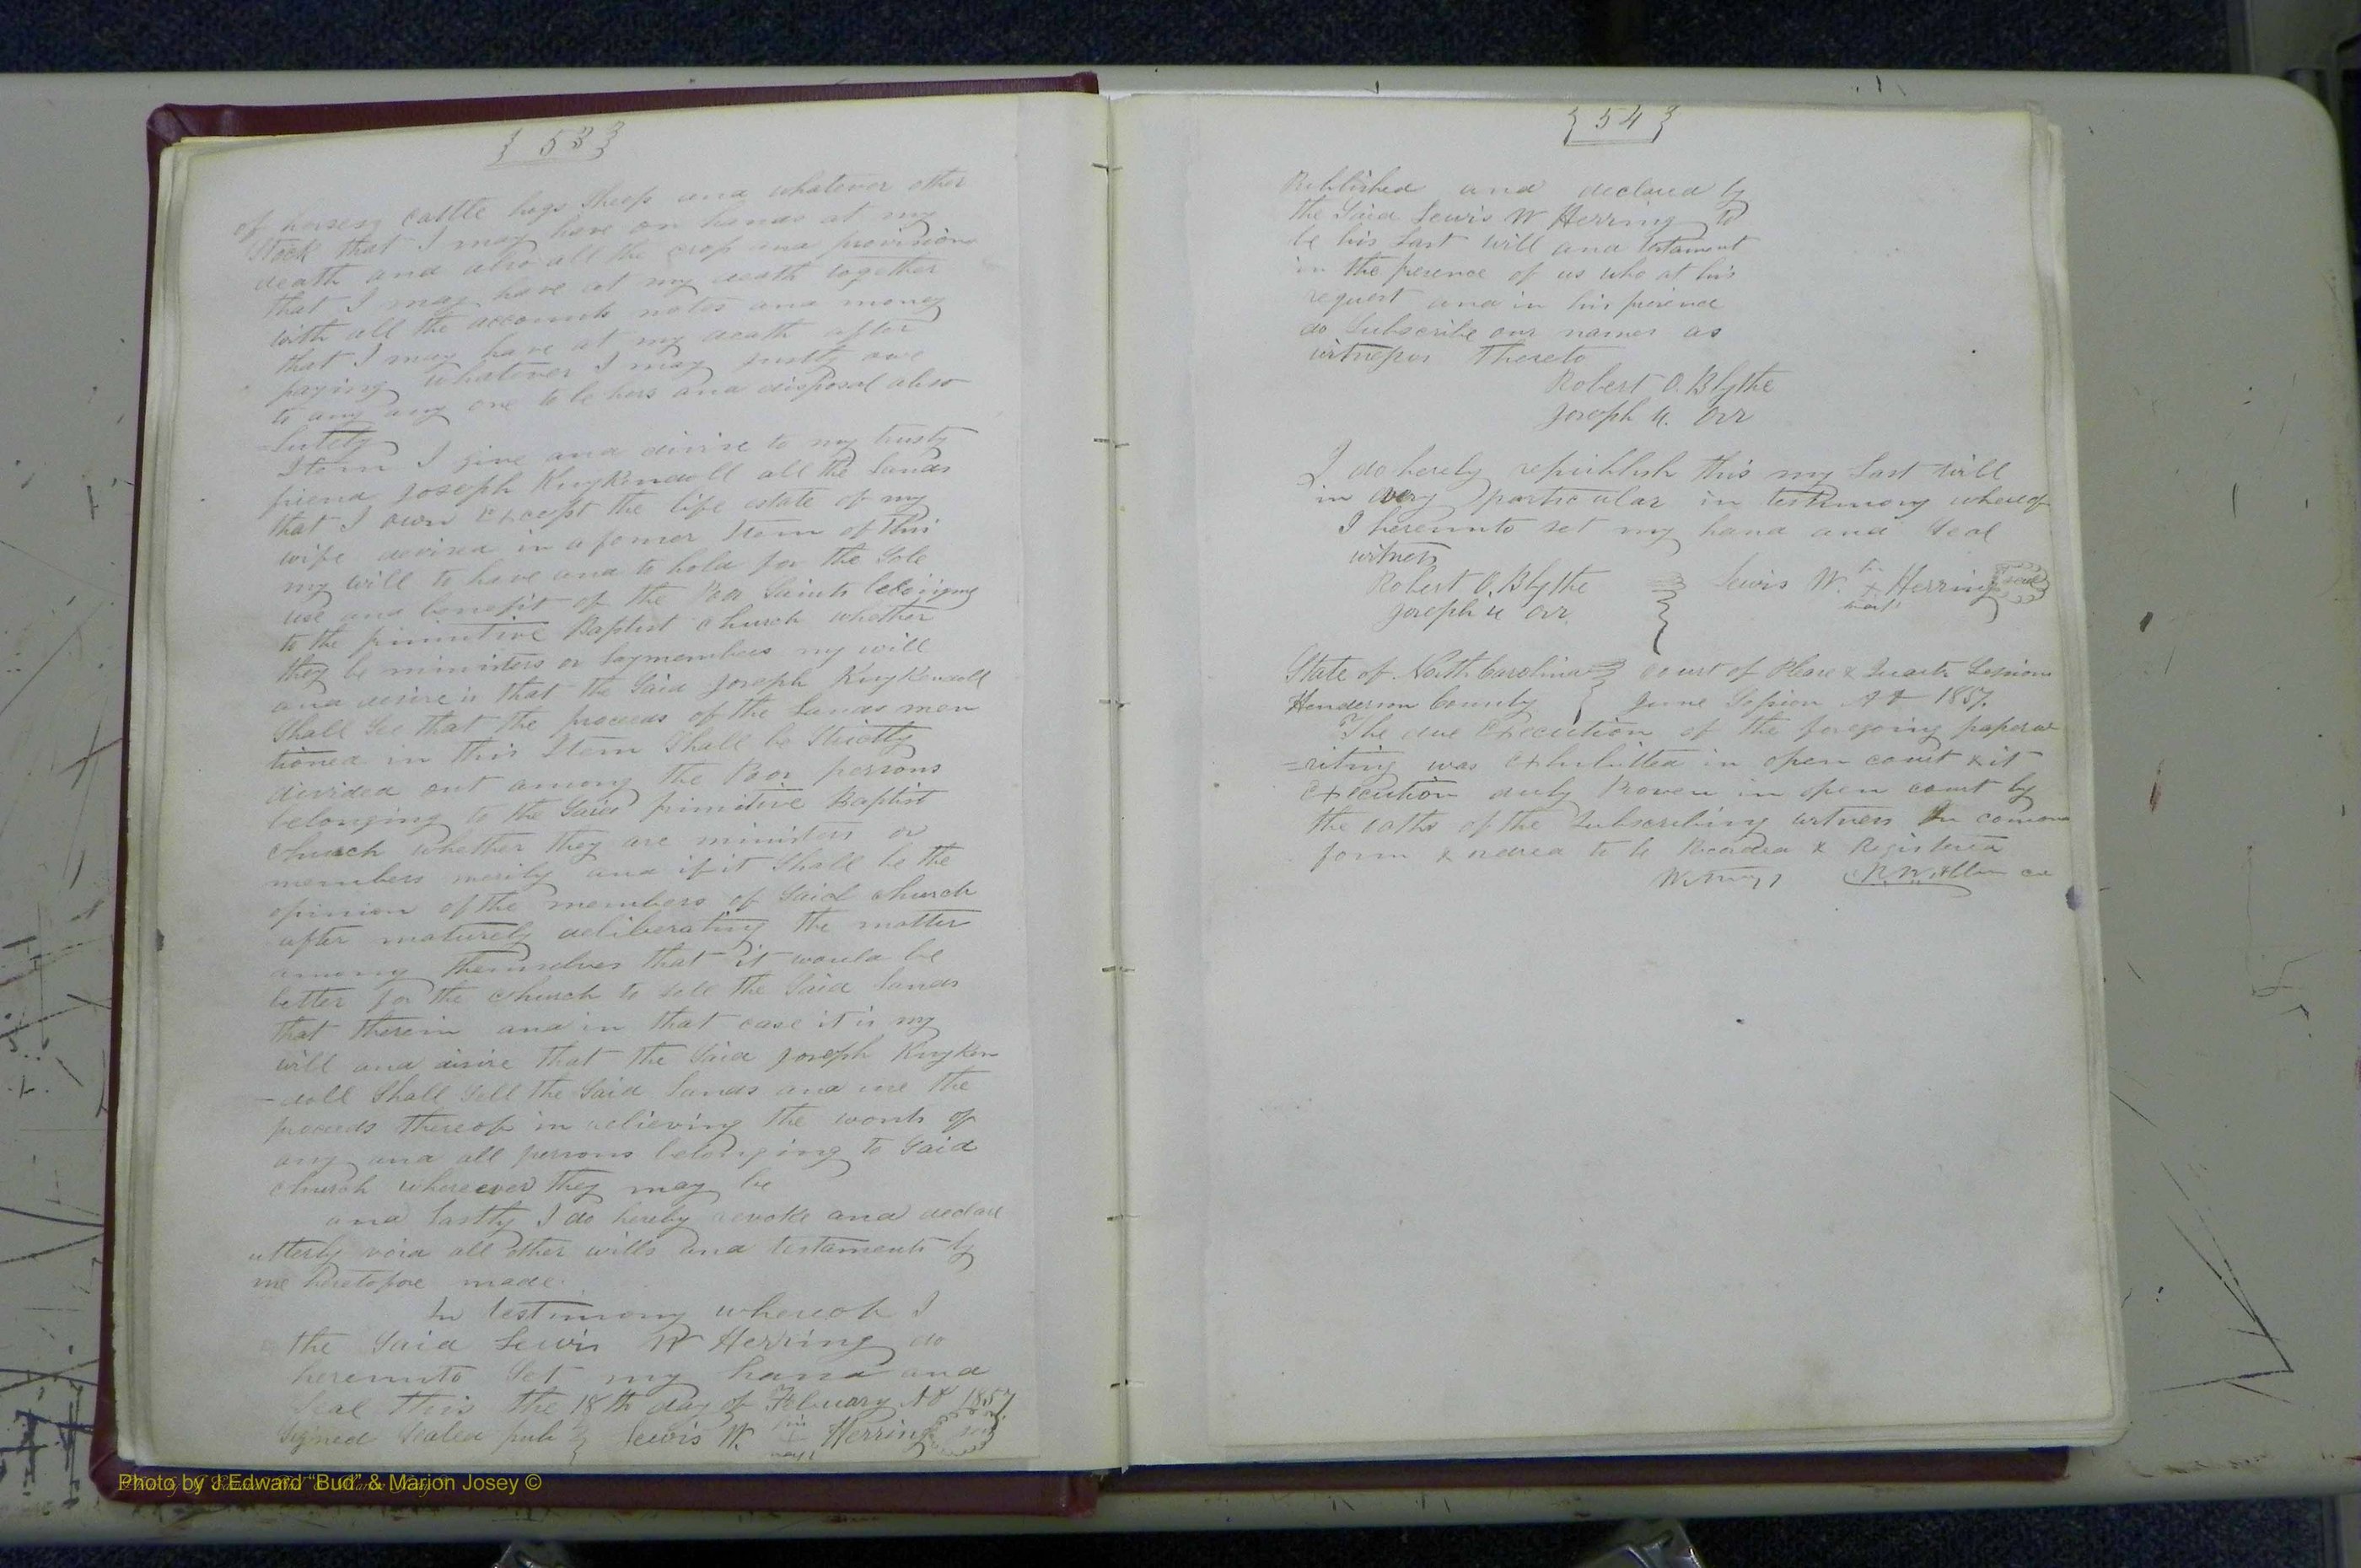 { 53 }
of horses cattle hogs Sheep and whatever other
Stock that I may have on hands at my
death and also all the crop and provisions
that I may have at my death together
with all the accounts notes and money
that I may have at my death after
paying whatever I may justly owe
to any any one to be hers and disposal abso
=lutely
Item I give and devise to my trusty
friend Joseph KuyKendoll all the Lands
that I own Except the life estate of my
wife devised in a former Item of this
my will to have and to hold for the Sole
use and benefit of the Poor Saints belonging
to the primitive Baptist church whether
they be ministers or laymembers my will
and desire is that the Said Joseph KuyKendall
Shall See that the proceeds of the Lands men
tioned in this Item Shall be Strictly
divided out among the Poor persons
belonging to the Said primitive Baptist
church whether they are ministers or
members merily and if it Shall be the
opinion of the members of Said church
after maturely deliberating the matter
among themselves that it would be
better for the church to sell the Said Lands
that therein and in that case it is my
will and desire that the Said Joseph KuyKen
-doll Shall Sell the Said Lands and use the
proceeds thereof in relieving the wants of
any and all persons belonging to Said
church whereever they may be
and lastly I do hereby revoke and declare
utterly void all other wills and testaments by
me heretofore made.
In testimony whereof I
the Said Lewis W Herring do
hereunto Set my hand and
Seal this the 18th day of February AD 1857
Signed Sealed pub Lewis W. his + mark Herring seal
Photo by J Edward “Bud” & Marion Josey ©
{ 54 }
Published and declared by
the Said Lewis W Herring to
be his Last Will and testament
in the presence of us who at his
request and in his presence
do Subscribe our names as
witnesses Thereto
Robert O. Blythe
Joseph U. Orr
I do hereby republish this my Last Will
in every particular in testimony whereof
I hereunto set my hand and Seal
witness
Robert O. Blythe Lewis W. his + mark Herring seal
Joseph U Orr.
State of North Carolina Court of Pleas & Quarter Sessions
Henderson County June Session AD 1857.
The due Execution of the foregoing paperw
=riting was Exhibitted in open court & it
Execution duly Proven in open court by
the oaths of the Subscribing witness In common
form & ordered to be Recorded & Registered